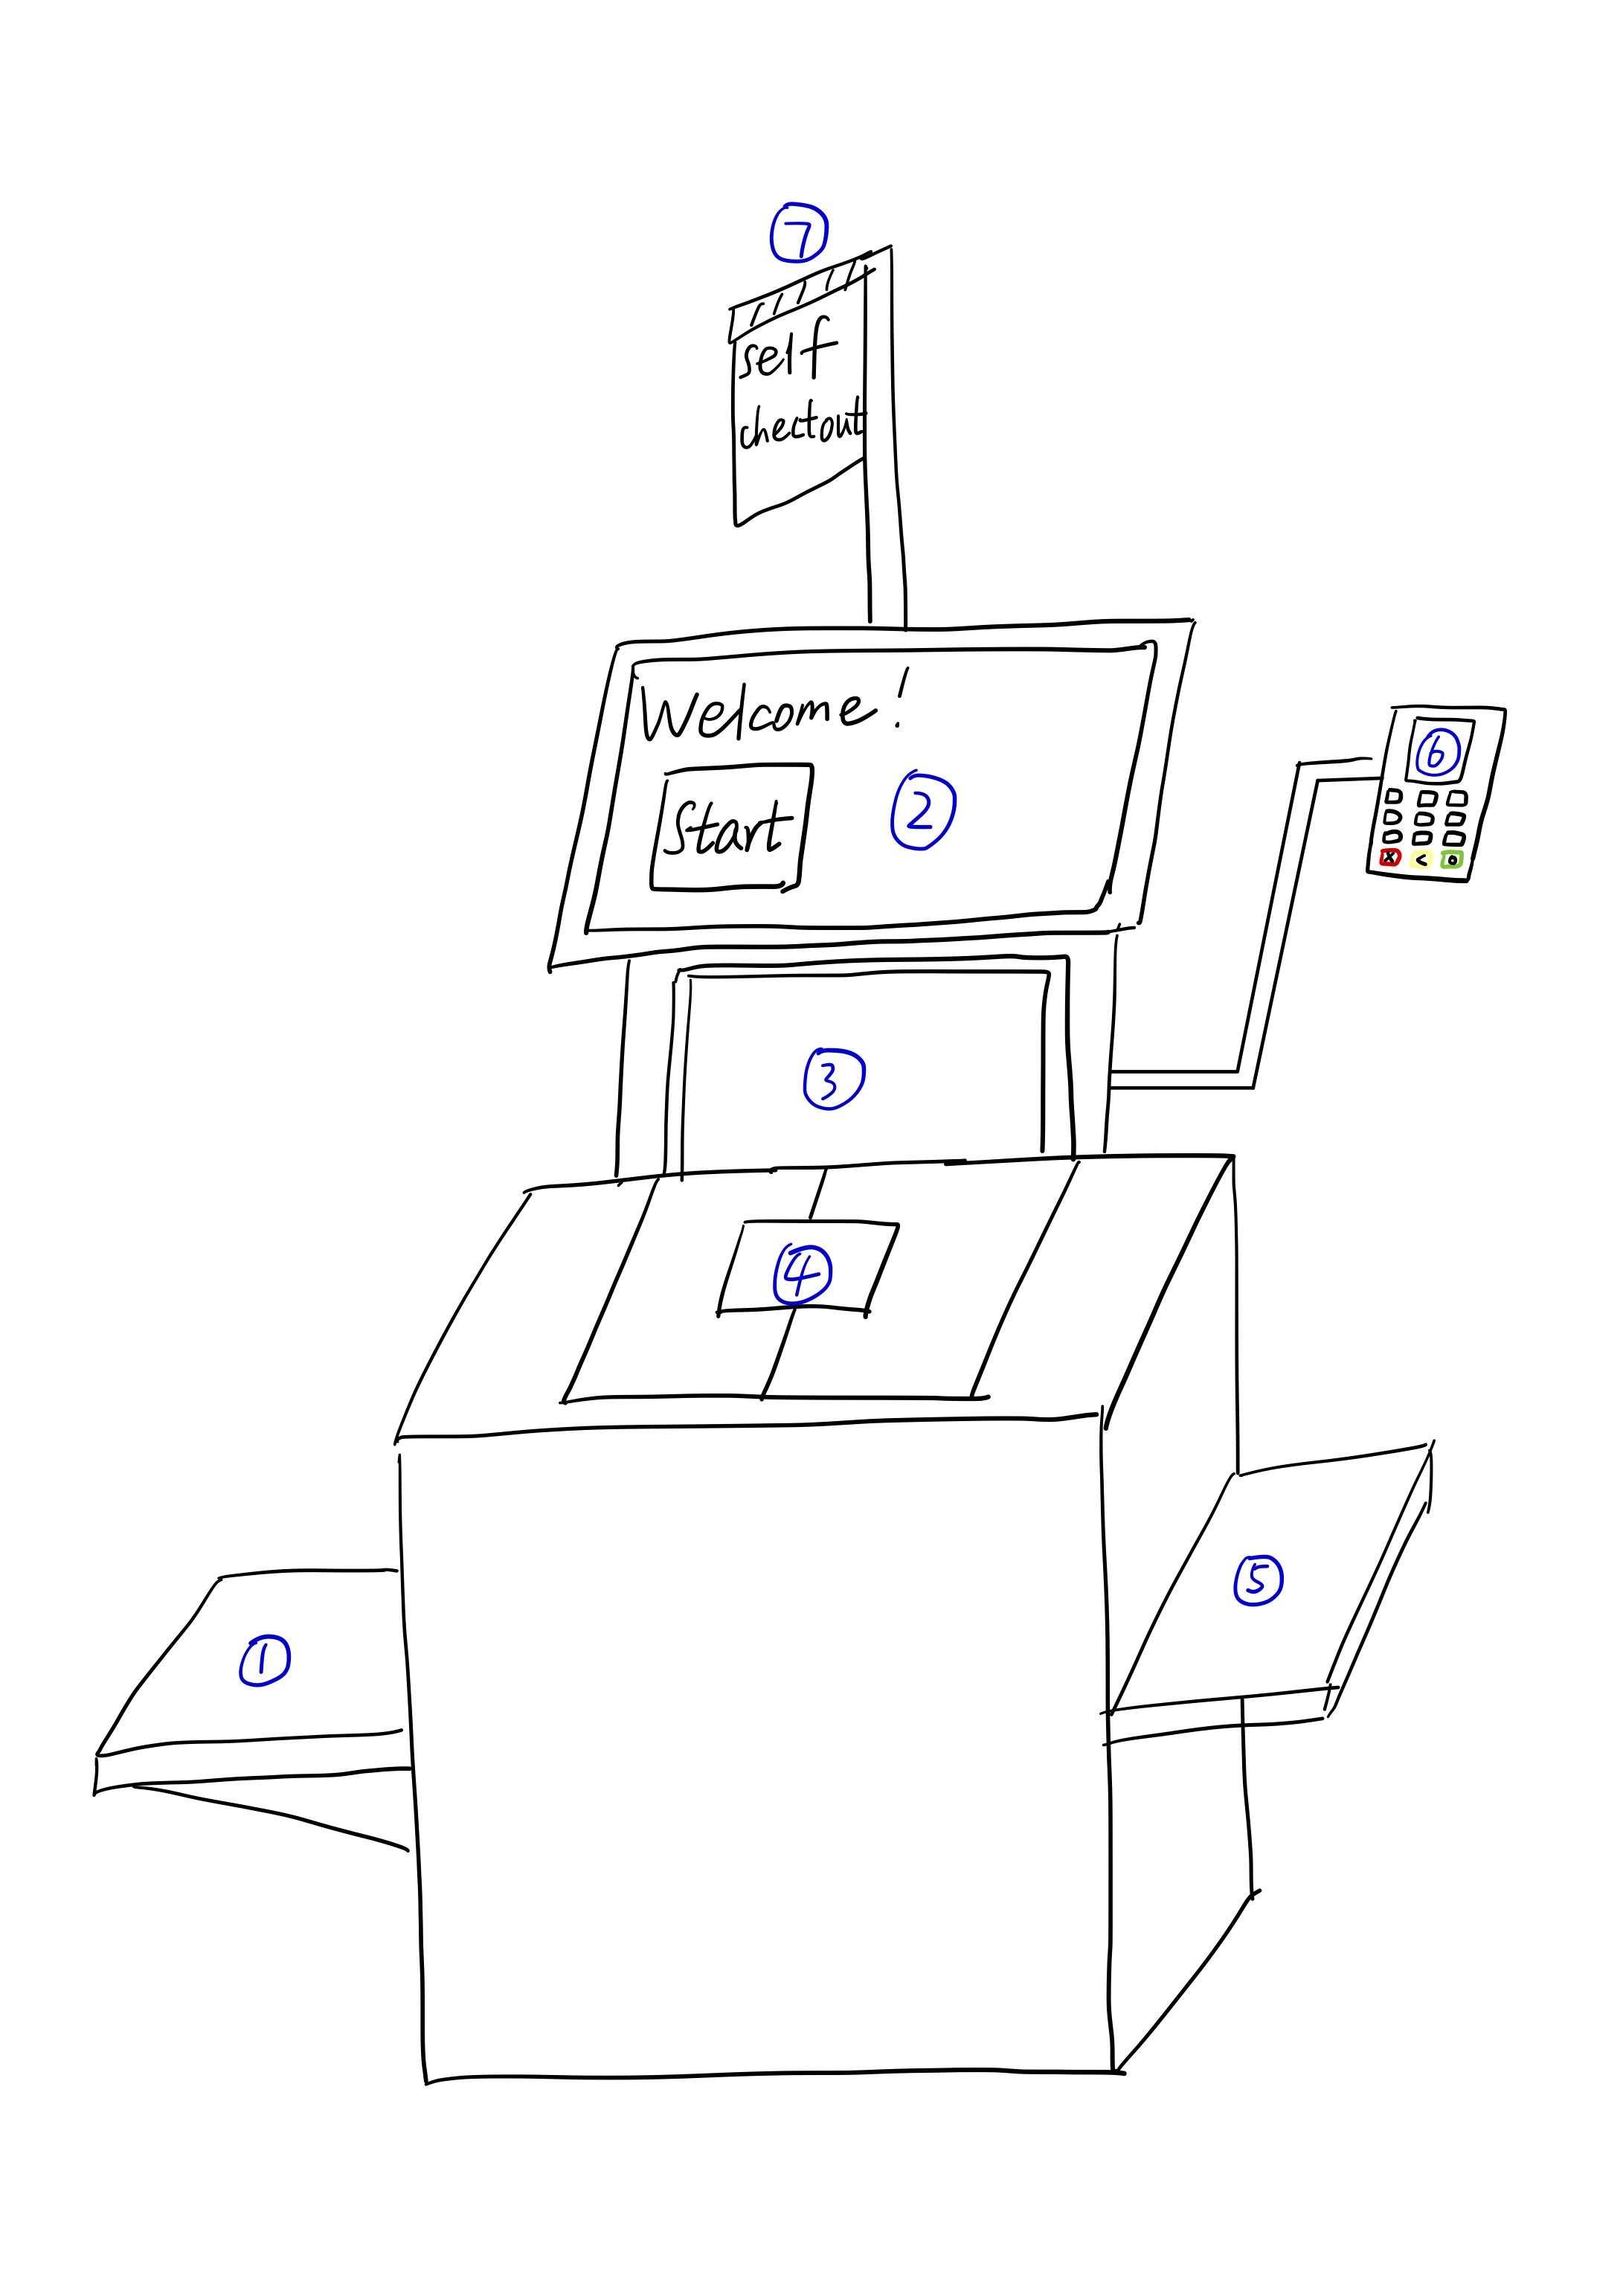 7
Self
checkout
Welcome!
Start
2
6
X < o
3
4
5
1